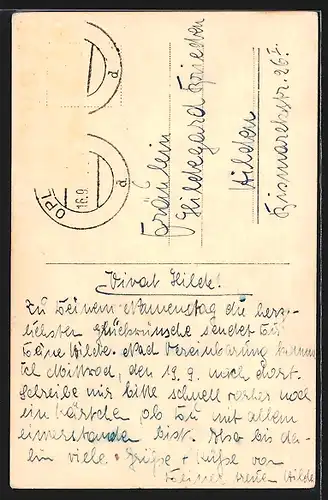 OPL
16.9.
d
d
Fräulein
Hildegard
Hilden
Bismarckstr. 26 I
Vivat Hilde!
Zu Deinem Namenstag die herz-
lichsten Glückwünsche sendet Dir
Deine Hilde. Nach Vereinbarung komme
ich Mittwoch, den 19.9. nach dort.
Schreibe mir bitte schnell vorher noch
ein Kärtchen, ob Du mit allem
einverstanden bist. Also bis da-
hin viele Grüße + Küsse von
Deiner treuen Hilde